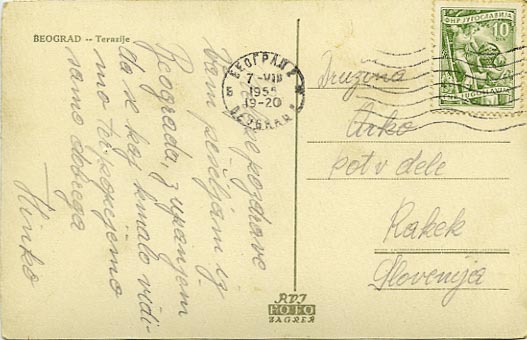 BEOGRAD -- Terazije
pozdrave
Vam pošiljam iz
Beograda, z upanjem
da se kaj kmalo vidi-
mo
samo dobrega
Hinko
БЕОГРАД 2
7-VIII
1955
19-20
BEOGRAD
ФНР ЈУГОСЛАВИЈА
10
DIN
FNR JUGOSLAVIJA
Družina
Arko
pot v dele
Rakek
Slovenija
RPJ
FOTO
ZAGREB